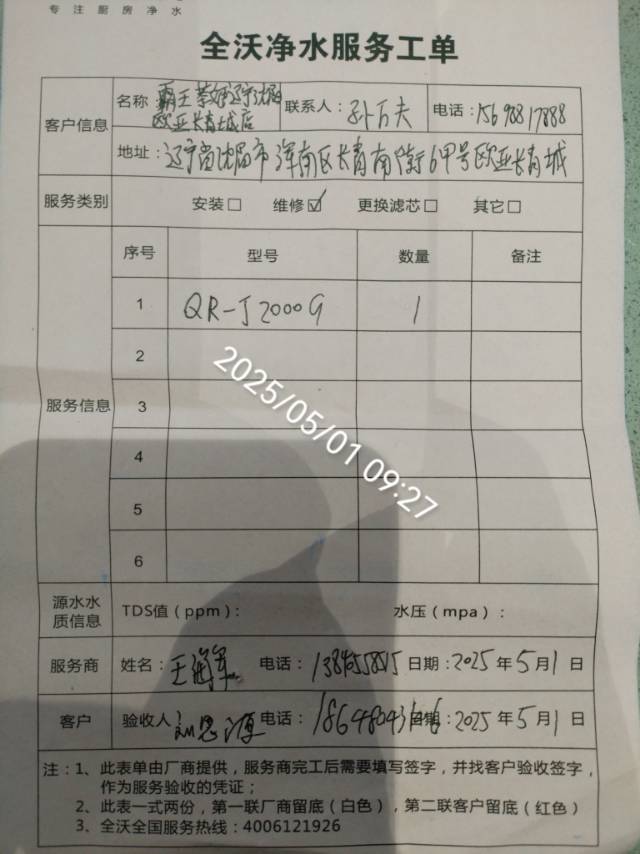 专注厨房净水
全沃净水服务工单
客户信息
名称 霸王茶姬辽宁沈阳
欧亚长青城店
联系人：孙万夫
电话：15698817888
地址：辽宁省沈阳市浑南区长青南街64甲号欧亚长青城
服务类别 安装□ 维修☑ 更换滤芯□ 其它□
服务信息
序号 型号 数量 备注
1 QR-J2000G 1
2
3
4
5
6
2025/05/01 09:27
源水水
质信息
TDS值（ppm）： 水压（mpa）：
服务商 姓名：王海军 电话： 日期：2025年5月1日
客户 验收人 刘思源 电话： 日期：2025年5月1日
注：1、此表单由厂商提供，服务商完工后需要填写签字，并找客户验收签字，
作为服务验收的凭证；
2、此表一式两份，第一联厂商留底（白色），第二联客户留底（红色）
3、全沃全国服务热线：4006121926